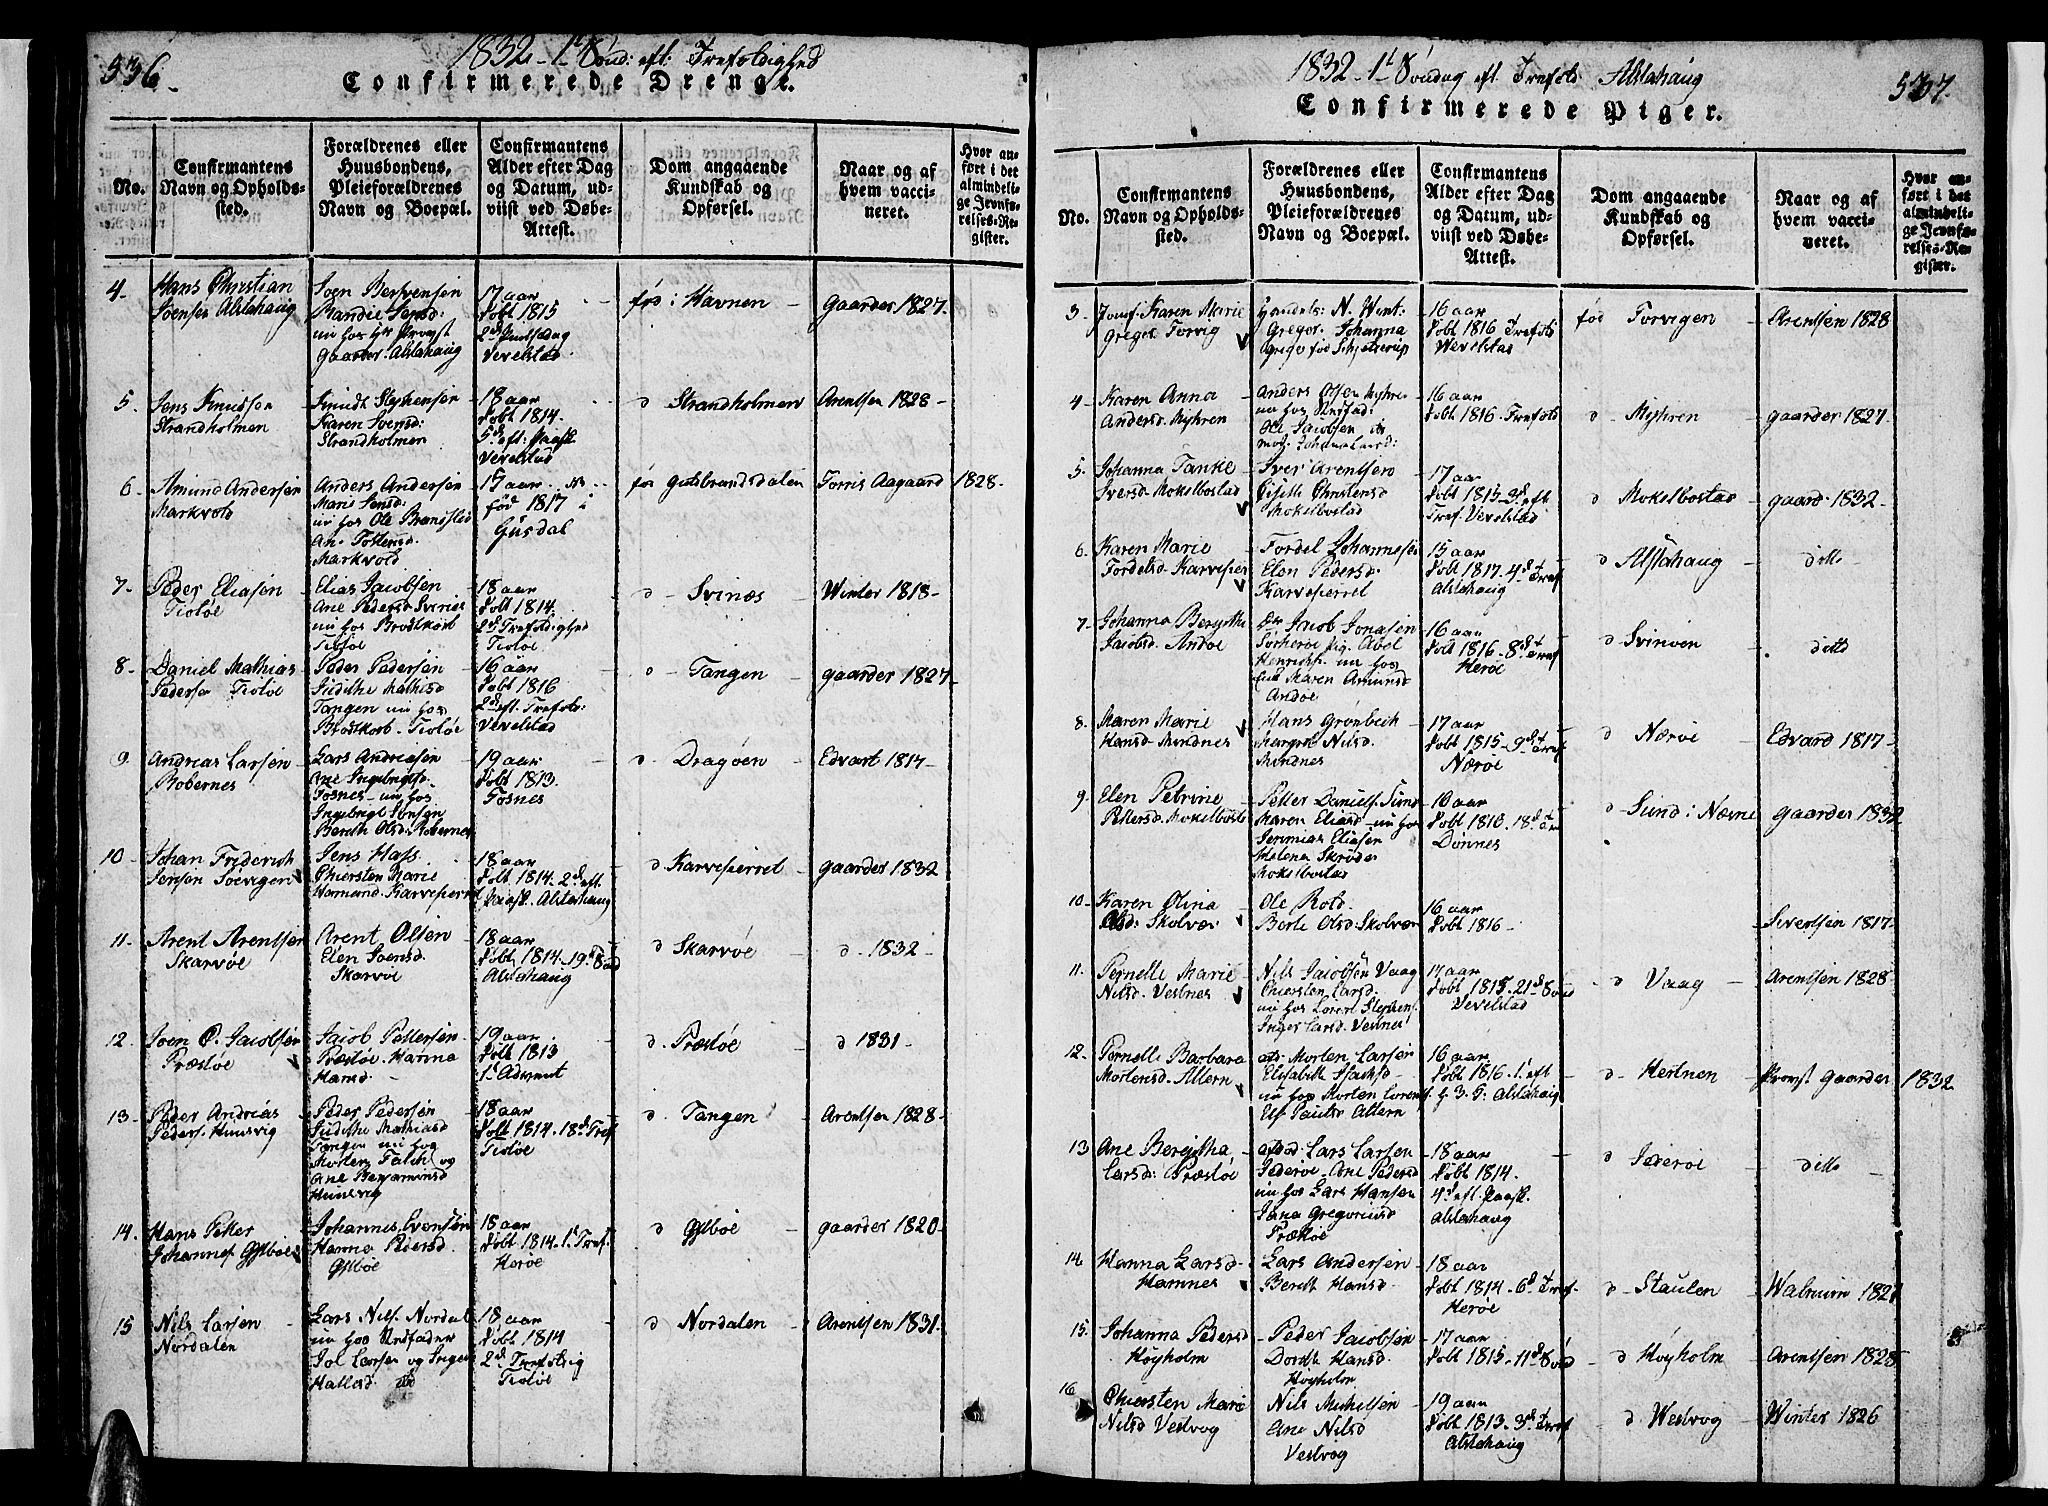 536.
1832 - 1t Sønd: eft: Trefoldighed
Confirmerede Drenge.
No.
Confirmantens
Navn og Opholds-
sted.
Forældrenes eller
Huusbondens,
Pleieforældrenes
Navn og Boepæl.
Confirmantens
Alder efter Dag
og Datum, ud-
viist ved Døbe-
Attest.
Dom angaaende
Kundskab og
Opførsel.
Naar og af
hvem vacci-
neret.
Hvor an-
ført i det
almindeli-
ge Jevnfø-
relses-Re-
gister.
4-
Hans Christian
Soensen Alstahaug
Soen
Randie Jensd:
nu hos Hr Provst
Gaarder Alstahaug
17 aar
Døbt 1815
Vevelstad
fød i Havnen
Gaarder 1827
5.
Jens Knudsen
Strandholmen
Knudt Stephensen
Karen Soensd:
Strandholmen
18 aar
Døbt 1814.
5d eft. Paask
Vevelstad
d Strandholmen
Arentsen 1828
6
Amund Andersen
Markvold
Anders Andersen
Mari Jensd:
nu hos Ole
Markvold
15 aar
fød 1817 i
Gusdal
før Gulbrandsdalen
Torris Aagaard
1828
7.
Peder Eliasen
Tioløe
Elias Jacobsen
Ane Pedersd Svinnes
nu hos Brodtkorb
Tioløe
18 aar
Døbt 1814.
2d Trefoldighed
Tioløe
d Svinæs
Winter 1818
8.
Daniel Mathias
Peders Tioløe
Peder Pedersen
Judithe Mathisd
Tangen nu hos
Brodtkorb Tioløe
16 aar
Døbt 1816
2d eft. Trefold:
Vevelstad
d Tangen
Gaarder 1827
9
Andreas Larsen
Robernes
Lars Andreasen
Ane Ingebrigtsd.
Tosnes nu hos
Ingebrigt Jonsen
Bereth Olsd. Robernes
19 aar
Døbt 1813
Tosnes
d Dragøen
Edvart 1814
10
Johan Friderich
Jensen Søevigen
Jens Hass
Chiersten Marie
Hamund Karvesierret
18 aar
Døbt 1814 - 2d eft
Paask. Alstahaug
d Karvesierret
Gaarder 1832
11.
Arent Arentsen
Skarvøe
Arent Olsen
Elen Soensd.
Skarvøe
18 aar
Døbt 1814 - 19d Sønd
Alstahaug
d Skarvøe
d. 1832
12
Soen O. Jacobsen
Præstøe
Jacob Pettersen
Præstøe. Hanna
Hansd
19 aar
Døbt 1813
1d Advent
d. Præstøe
d 1831
13.
Peder Andreas
Peders. Huusvig
Peder Pedersen
Judithe Mathiasd
Tangen nu hos
Morten Falch og
Ane Benjaminsd
Huusvig
18 aar
Døbt 1814. 18d Tref
Tioløe
d Tangen
Arentsen 1828
14.
Hans Petter
Johannes Gyltøe
Johannes Svensen
Hanna Pedersd.
Gyltøe
18 aar
Døbt 1814. 1d Tref.
Herøe
d Gyltøe
Gaarder 1820
15
Nils Larsen
Nordalen
Lars Nils. Nordal
nu hos Stedfader
Jol Larsen og Inger
Hallesd
18 aar
Døbt 1814
2d Trefoldig
Tioløe
d Nordalen
Arentsen 1831
1832 - 1t Søndag eft Trefold. Alstahaug
537.
Confirmerede Piger.
No.
Confirmantens
Navn og Opholds-
sted.
Forældrenes eller
Huusbondens,
Pleieforældrenes
Navn og Boepæl.
Confirmantens
Alder efter Dag
og Datum, ud-
viist ved Døbe-
Attest.
Dom angaaende
Kundskab og
Opførsel.
Naar og af
hvem vacci-
neret.
Hvor an-
ført i det
almindeli-
ge Jevnfø-
relses-Re-
gister.
3.
Jomf. Karen Marie
Greger Forvig
Handels: N. Wint:
Greger. Johanna
Greger fød Schjelderup
16 aar
Døbt 1816 Trefold
Wevelstad
fød Forvigen
Arentsen 1828
4
Karen Anna
Andersd. Myhren
Anders Olsen Myhre
nu hos
Ole Jacobsen
16 aar
Døbt 1816. Trefold
d Myhren
Gaarder 1827
5.
Johanna Tanke
Iversd. Mokelbostad
Iver Arentsen
Cisille Christensd
Mokelbostad
17 aar
Døbt 1815 - 3d eft
Tref. Vevelstad
d Mokelbostad
Gaard. 1832
6.
Karen Marie
Tordelsd. Karvesier
Tordel Johannesen
Elen Pedersd.
Karvesierret
15 aar
Døbt 1817. 4d Tref
Alstahaug
d Alstahaug
ditto
7.
Johanna Bergithe
Jacobsd. Andøe
Jacob Jonasen
nu hos
Maren Amunds
Andøe
16 aar
Døbt 1816 - 8d Tref
Herøe
d Svinøen
ditto
8.
Maren Marie
Hansd. Mindnes
Hans Grønbech
Margret Nilsd.
Mindnes
17 aar
Døbt 1815 - 9d Tref
Nærøe
d Nærøe
Edvard 1817
9.
Elen Petrine
Pettersd. Mokelbosta
Petter Daniels. Sund
Maren Eliasd nu hos
Jermias Eliasen
Helena Skrøder
Mokelbostad
Dønnes
d Sund i Nærøe
Gaarder 1832
10.
Karen Olina
Olsd: Skolvær
Ole Rold.
Berte Olsd. Skolvær
16 aar
Døbt 1816
Sivertsen 1817
11.
Pernelle Marie
Nilsd. Vestnes
Nils Jacobsen Vaag
Chiersten Larsd.
nu hos Lorent Stephens
Inger Larsd. Vestnes
17 aar
Døbt 1815. 21d Sønd
Vevelstad
d Vaag
Arentsen 1828
12.
Pernelle Barbara
Mortensd. Altern
Morten Larsen
Elisabeth Isachsd
nu hos Morten Lorent
Els Paulsd Altern
16 aar
Døbt 1816. 1. eft
h. 3. K: Alstahaug
d Hestnen
Provst Gaarder
1832
13
Ane Bergitha
Larsd: Præstøe
afdød: Lars Larsen
Jederøe. Ane Pedersd
nu hos Lars Hansen
Jana Gregoriusd
Præstøe
18 aar
Døbt 1814.
4d eft. Paask.
Alstahaug
d Jederøe
ditto
14
Hanna Larsd
Hamnes
Lars Andersen
Bereth Hansd.
18 aar
Døbt 1814 6d Tref.
Herøe
d Staulen
Walnum 1827
15.
Johanna Pedersd
Høyholm
Peder Jacobsen
Dorth Hansd.
Høyholm
17 aar
Døbt 1815 - 11d Sønd
d Høyholm
Arentsen 1828
16
Chiersten Marie
Nilsd Vestvog
Nils Michelsen
Ane Nilsd
Vestvog
19 aar
Døbt 1813. 3d Tref
Alstahaug
d Westvog
Winter 1826